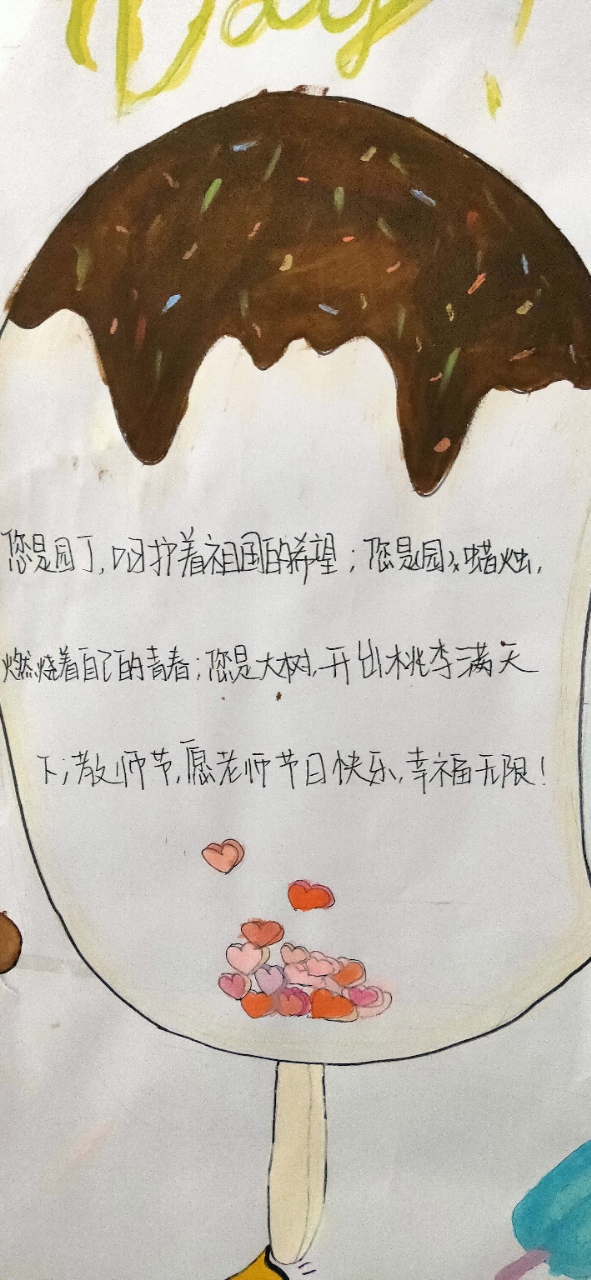 Day!
您是园丁,呵护着祖国的希望;您是园丁蜡烛,
燃烧着自己的青春;您是大树,开出桃李满天
下;教师节,愿老师节日快乐,幸福无限!